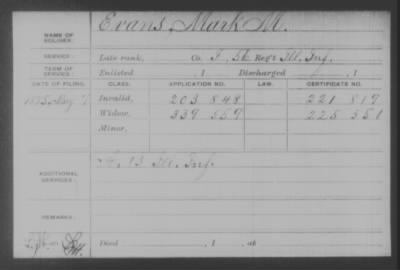 NAME OF SOLDIER: Evans, Mark M.
SERVICE: Late rank, Co. I, 56 Reg't Ill. Inf.
TERM OF SERVICE: Enlisted , 1 Discharged , 1
DATE OF FILING. CLASS. APPLICATION NO. LAW. CERTIFICATE NO.
1875 Aug 7 Invalid, 203 848 221 817
Widow, 339 559 225 551
Minor,
ADDITIONAL SERVICES: 13 Ill. Inf.
REMARKS:
Died , 1 , at